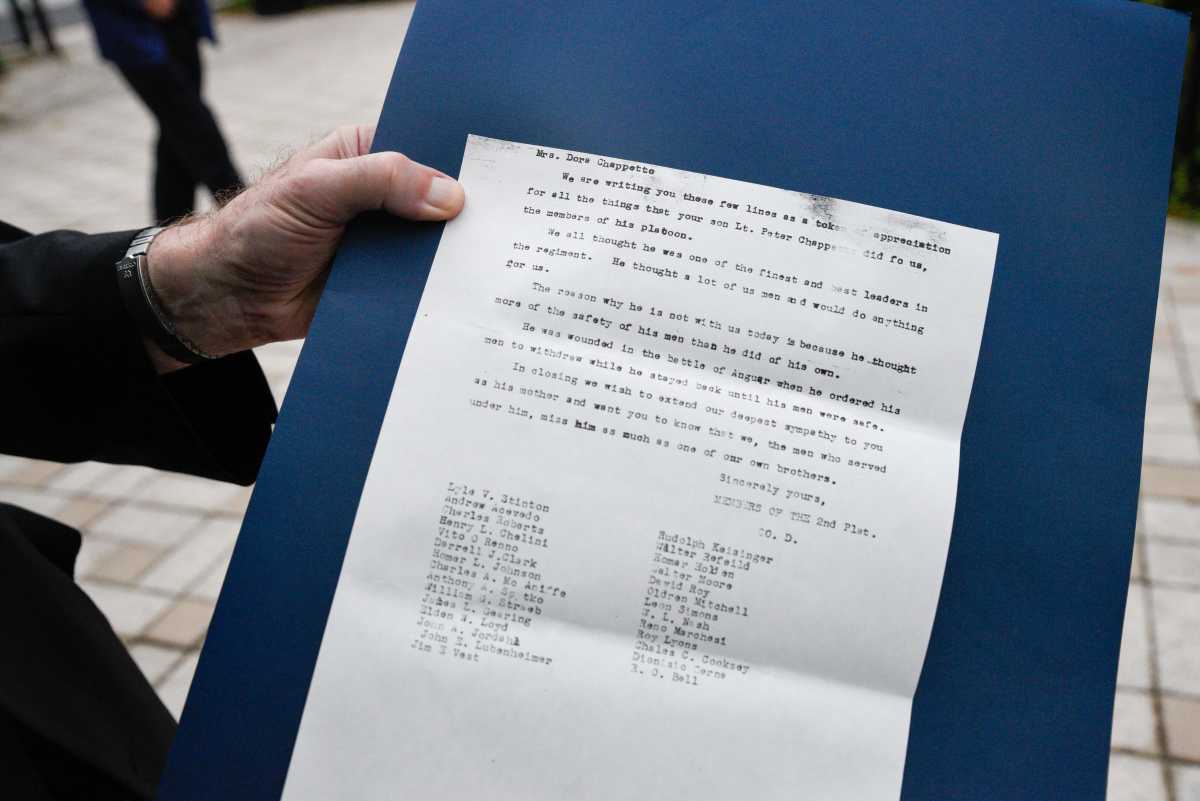 Mrs. Dora Chappette
We are writing you these few lines as a token appreciation
for all the things that your son Lt. Peter did fo us,
the members of his platoon.
We all thought he was one of the finest and best leaders in
the regiment. He thought a lot of us men and would do anything
for us.
The reason why he is not with us today is because he thought
more of the safety of his men than he did of his own.
He was wounded in the battle of Anguar when he ordered his
men to withdraw while he stayed back until his men were safe.
In closing we wish to extend our deepest sympathy to you
as his mother and want you to know that we, the men who served
under him, miss him as much as one of our own brothers.
Sincerely yours,
MEMBERS OF THE 2nd Plat.
CO. D.
Lyle V. Stinton
Andrew Acevedo
Charles Roberts
Henry L. Chelini
Vito O Renno
Darrell J.Clark
Homer L. Johnson
Charles A. Mc Aniffe
Anthony A.
William G. Straeb
James L. Gearing
Elden W. Loyd
John A. Jordahl
John E. Lubenheimer
Jim E Vest
Rudolph Keisinger
Walter Refeild
Homer Holden
Walter Moore
David Roy
Oldren Mitchell
Leon Simons
W. L. Nash
Reno Marchesi
Roy Lyons
Chales C. Cooksey
Dionisio Serna
R. O. Bell